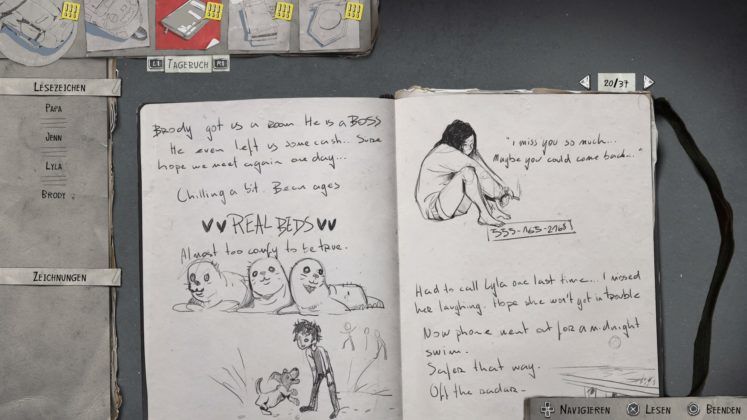 L1 TAGEBUCH R1
LESEZEICHEN
PAPA
JENN
LYLA
BRODY
ZEICHNUNGEN
20/37
Brody got us a room He is a BOSS
He even left us some cash.. Sure
hope we meet again one day...
Chilling a bit. Been ages
REAL BEDS
Almost too comfy to be true.
"I miss you so much...
Maybe you could come back..."
Had to call Lyla one last time... I missed
her laughing. Hope she won't get in trouble
Now phone went out for a midnight
swim.
Safer that way.
Off the radar.
NAVIGIEREN LESEN BEENDEN